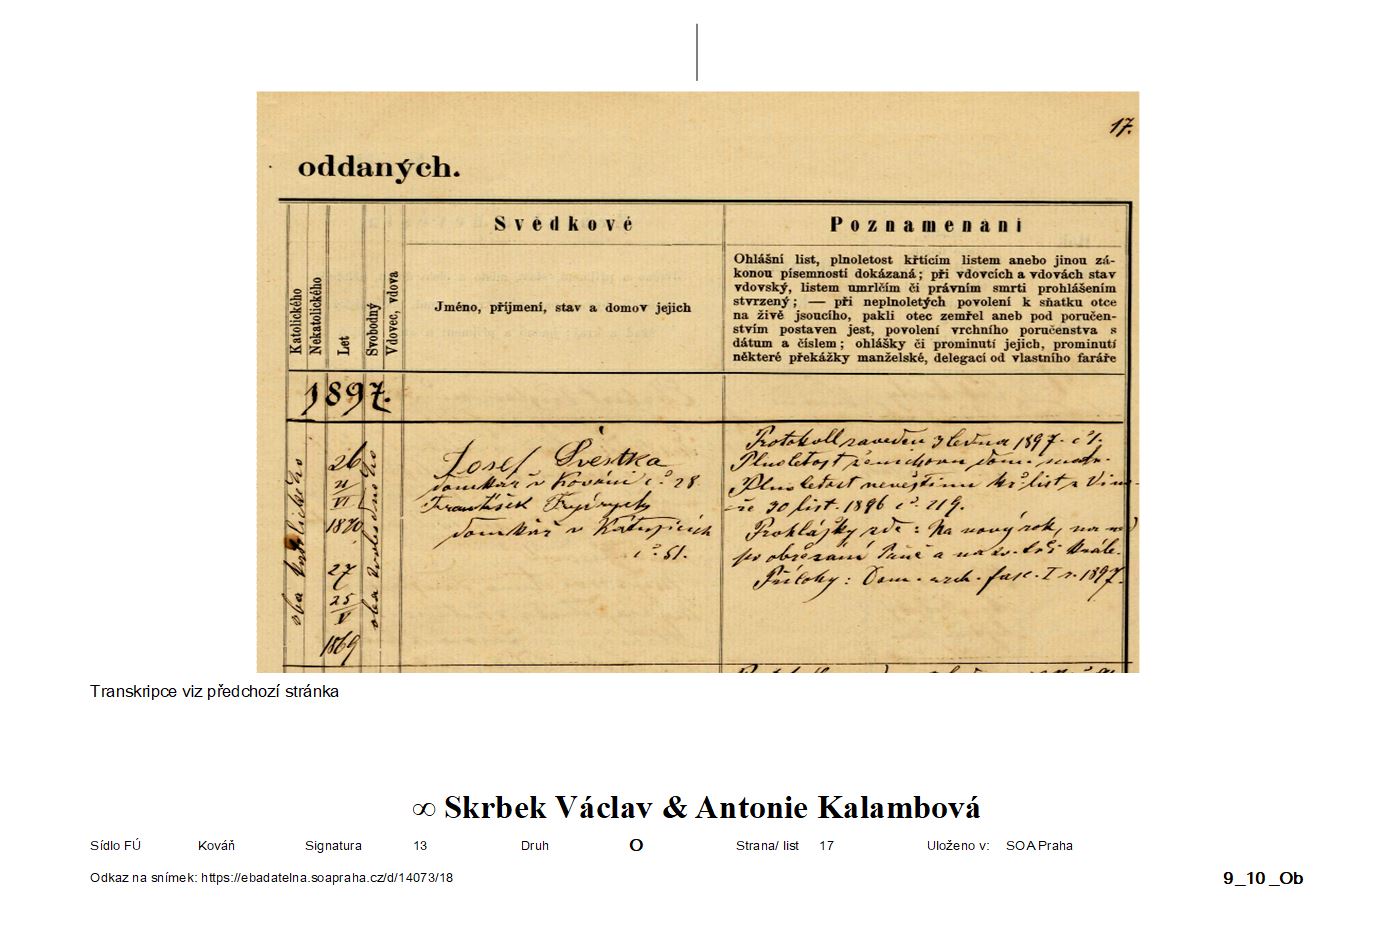 17.
oddaných.
Katolického
Nekatolického
Let
Svobodný
Vdovec, vdova
Svědkové
Jméno, příjmení, stav a domov jejich
Poznamenání
Ohlášní list, plnoletost křtícím listem anebo jinou zá-
konou písemností dokázaná; při vdovcích a vdovách stav
vdovský, listem umrlčím či právním smrti prohlášením
stvrzený; — při neplnoletých povolení k sňatku otce
na živě jsoucího, pakli otec zemřel aneb pod poručen-
stvím postaven jest, povolení vrchního poručenstva s
dátum a číslem; ohlášky či prominutí jejich, prominutí
některé překážky manželské, delegací od vlastního faráře
1897.
oba katolického
26
21
VI
1870
27
25
V
1869
oba svobodného
Josef Švestka
domkář v Kováni č. 28.
František
domkář v
č. 51.
Protokoll zaveden 3 ledna 1897. č 1.
Plnoletost ženichova dom. matr.
Plnoletost nevěstina kř. list z Vino-
ře 30 list. 1896 č. 219.
Prohlášky zde: Na nový rok, na ned
po obřezání Páně a na sv. tři krále.
Přílohy: Dom. arch. fasc. I r. 1897.
Transkripce viz předchozí stránka
∞ Skrbek Václav & Antonie Kalambová
Sídlo FÚ Kováň Signatura 13 Druh O Strana/ list 17 Uloženo v: SOA Praha
Odkaz na snímek: https://ebadatelna.soapraha.cz/d/14073/18
9_10_Ob